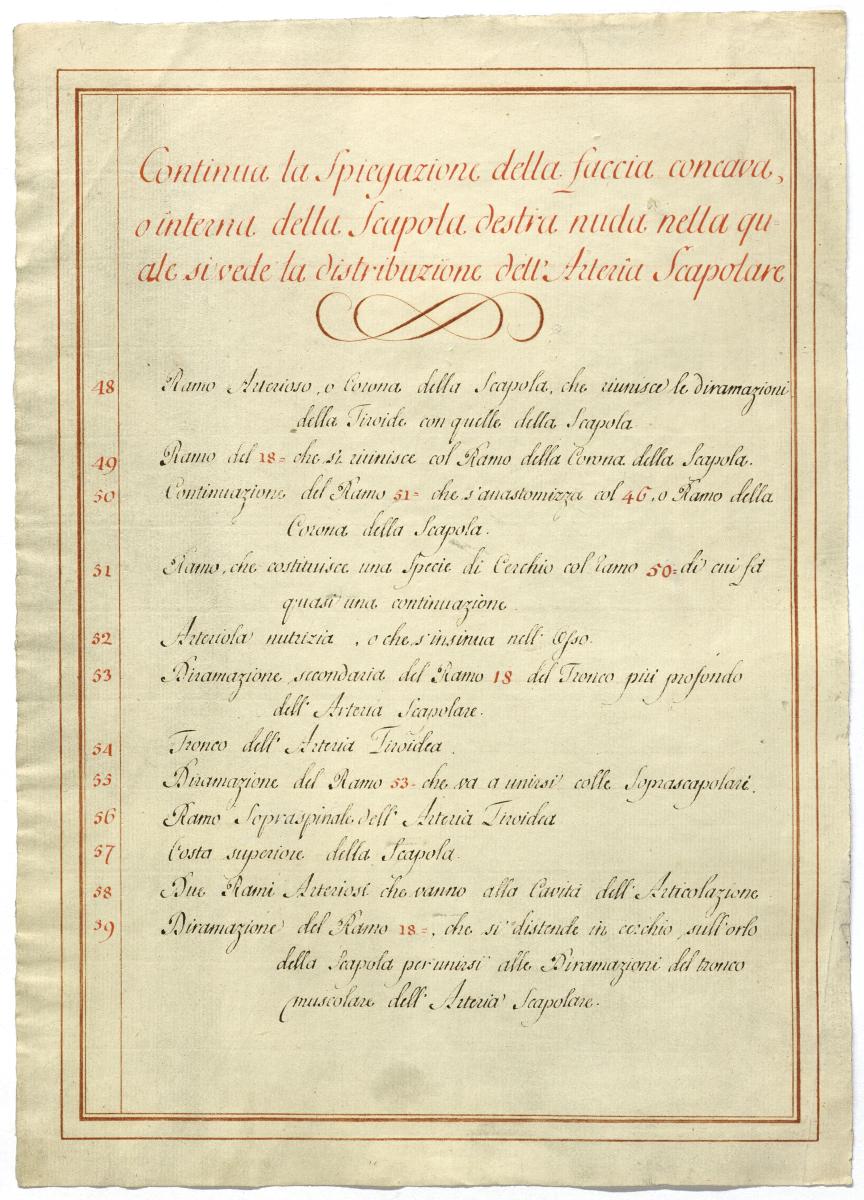 Continua la Spiegazione della faccia concava,
o interna della Scapola destra nuda nella qu=
ale si vede la distribuzione dell'Arteria Scapolare
48 Ramo Arterioso, o Corona della Scapola, che riunisce le diramazioni
della Tiroide con quelle della Scapola
49 Ramo del 18= che si riunisce col Ramo della Corona della Scapola.
50 Continuazione del Ramo 51= che s'anastomizza col 46, o Ramo della
Corona della Scapola.
51 Ramo, che costituisce una Specie di Cerchio col ramo 50= di cui fà
quasi una continuazione.
52 Arteriola nutrizia, o che s'insinua nell'Osso.
53 Diramazione secondaria del Ramo 18 del Tronco più profondo
dell'Arteria Scapolare.
54 Tronco dell'Arteria Tiroidea.
55 Diramazione del Ramo 53= che va a unirsi colle Soprascapolari.
56 Ramo Sopraspinale dell'Arteria Tiroidea
57 Costa superiore della Scapola.
58 Due Rami Arteriosi che vanno alla Cavità dell'Articolazione
59 Diramazione del Ramo 18=, che si distende in cerchio sull'orlo
della Scapola per unirsi alle Diramazioni del tronco
muscolare dell'Arteria Scapolare.